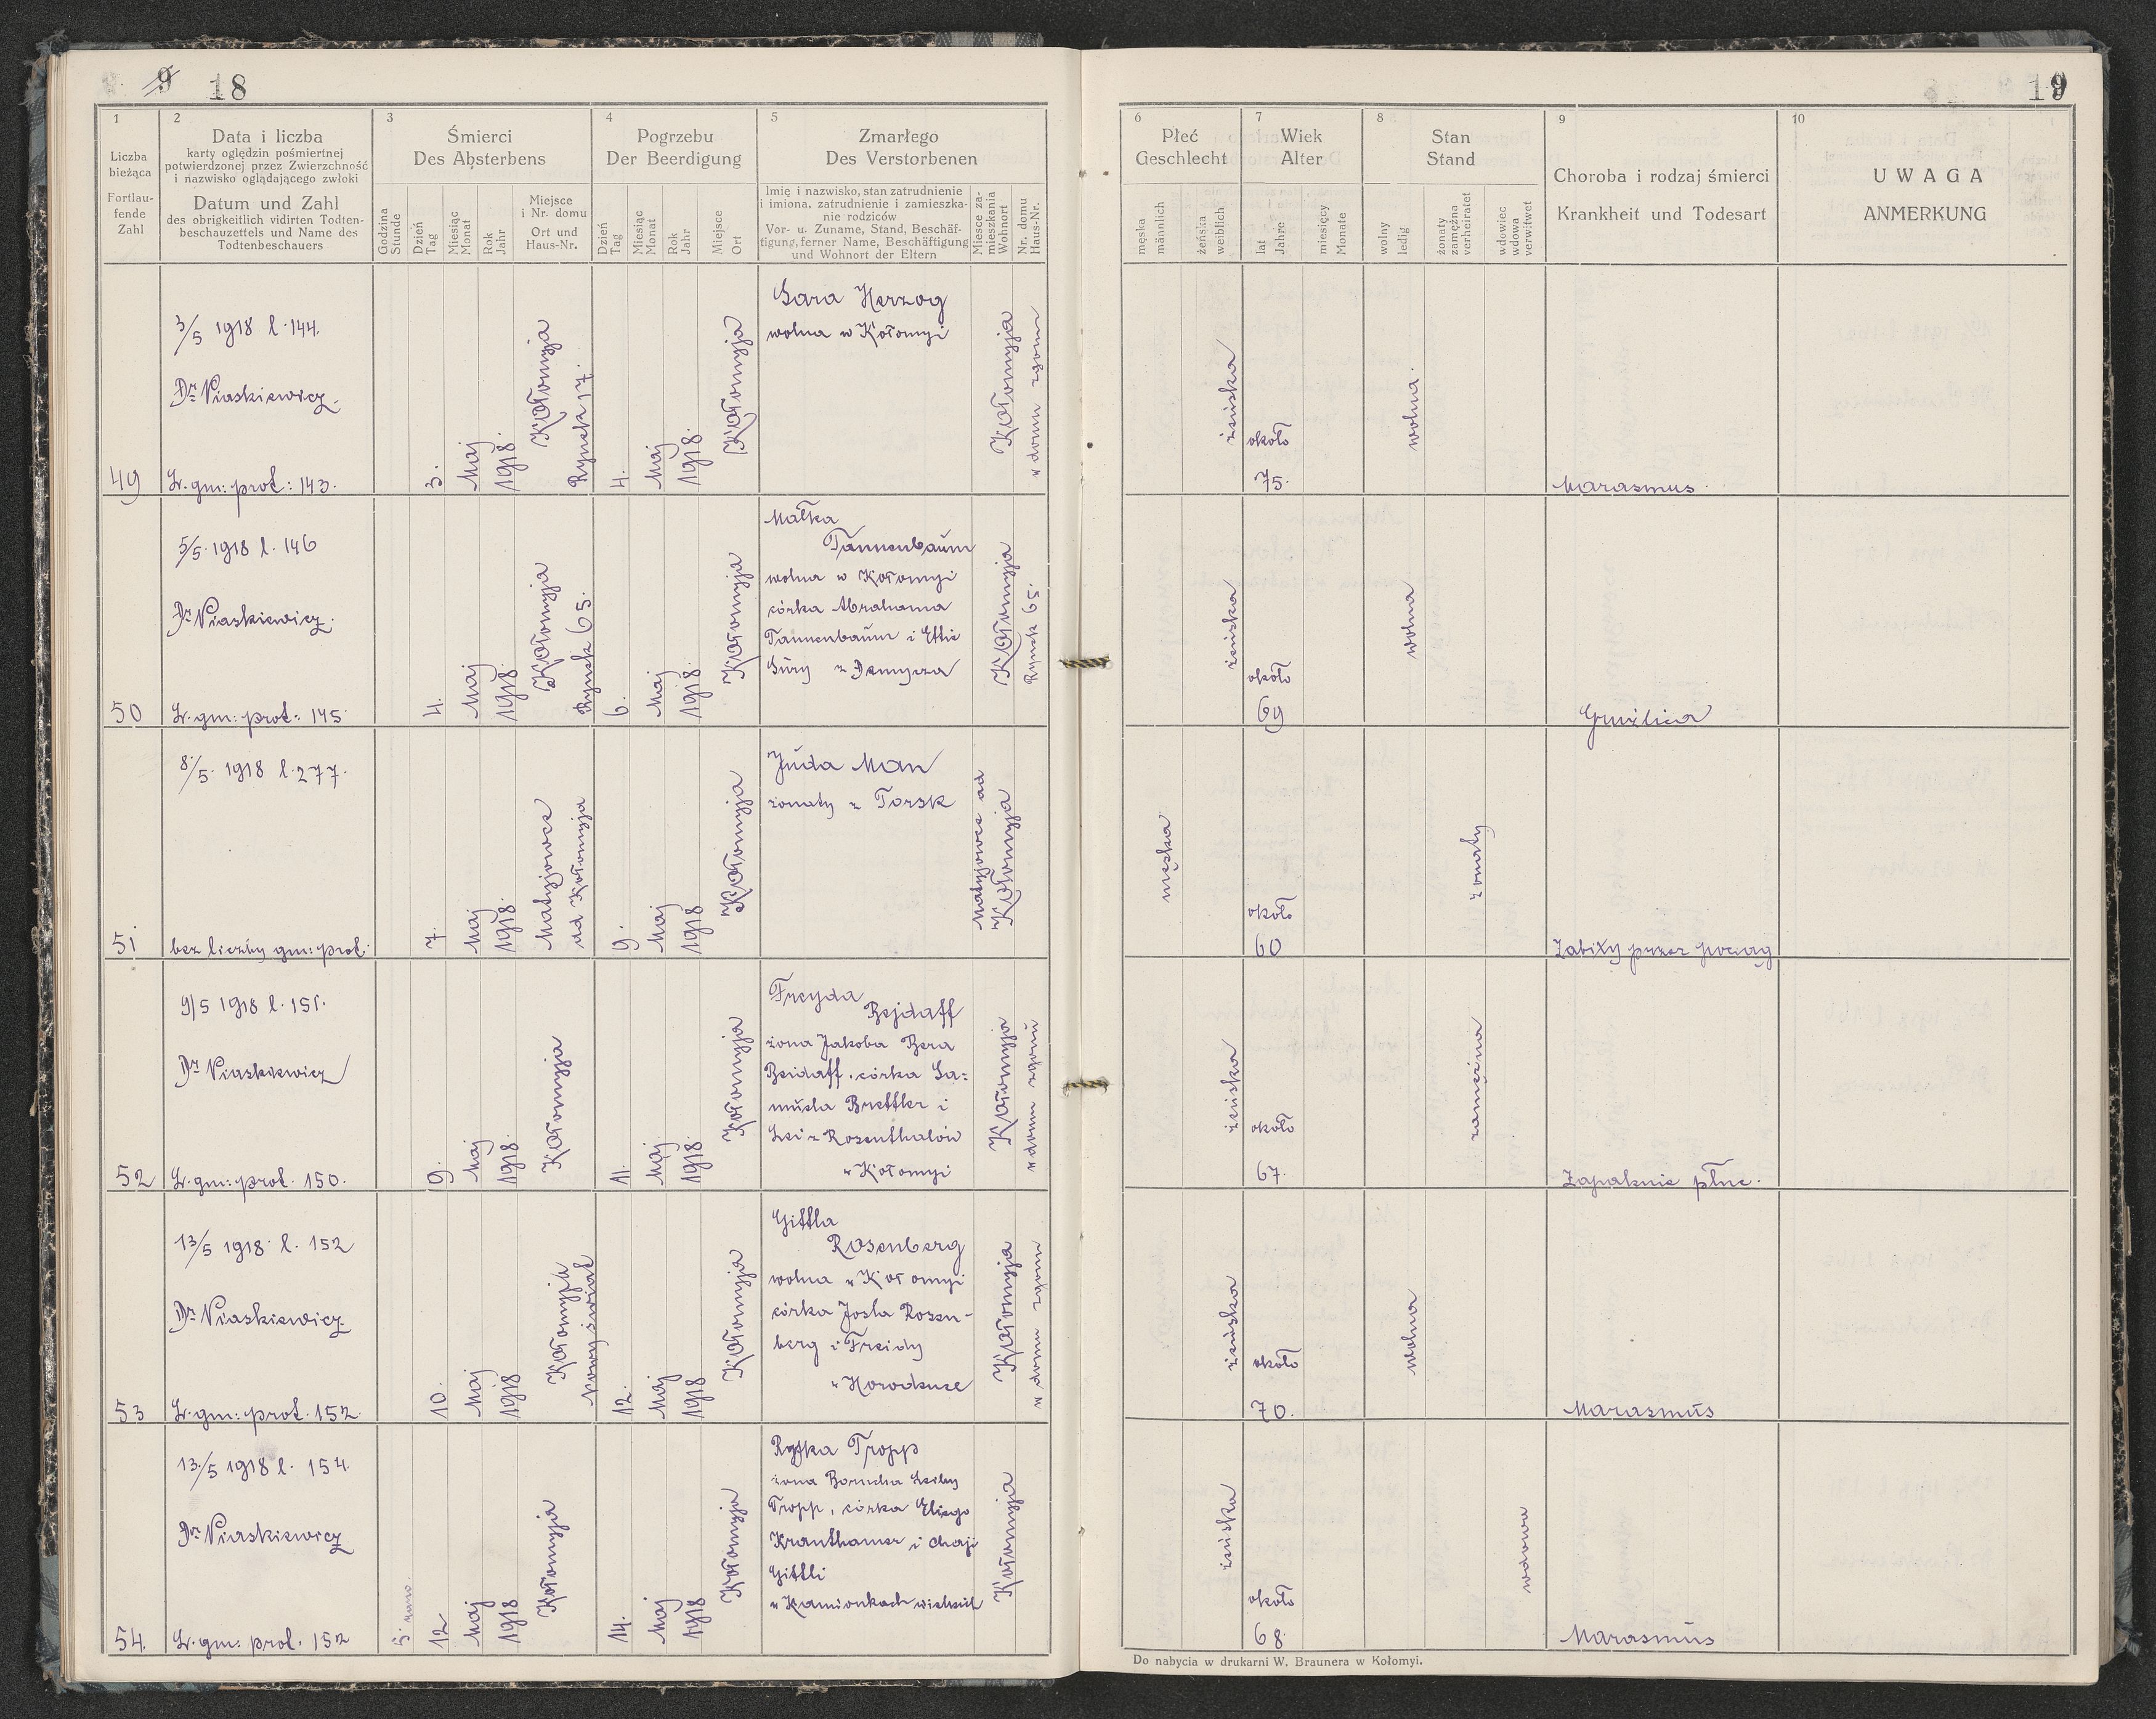 9 18
1
Liczba
bieżąca
Fortlau-
fende
Zahl
2
Data i liczba
karty oględzin pośmiertnej
potwierdzonej przez Zwierzchność
i nazwisko oglądającego zwłoki
Datum und Zahl
des obrigkeitlich vidirten Todten-
beschauzettels und Name des
Todtenbeschauers
3
Śmierci
Des Absterbens
Godzina
Stunde
Dzień
Tag
Miesiąc
Monat
Rok
Jahr
Miejsce
i Nr. domu
Ort und
Haus-Nr.
4
Pogrzebu
Der Beerdigung
Dzień
Tag
Miesiąc
Monat
Rok
Jahr
Miejsce
Ort
5
Zmarłego
Des Verstorbenen
Imię i nazwisko, stan zatrudnienie
i imiona, zatrudnienie i zamieszka-
nie rodziców
Vor- u. Zuname, Stand, Beschäf-
tigung, ferner Name, Beschäftigung
und Wohnort der Eltern
Miesce za-
mieszkania
Wohnort
Nr. domu
Haus-Nr.
49
3/5 1918 l. 144.
Dr Piaskiewicz.
L. gm: prot: 143.
3.
Maj
1918.
Kołomyja
Rynek 17.
4.
Maj
1918.
Kołomyja
Sara Herzog
wolna w Kołomyi
Kołomyja
w domu zgonu
50
5/5. 1918 l. 146
Dr Piaskiewicz.
L. gm: prot: 145
4.
Maj
1918.
Kołomyja
Rynek 65.
6.
Maj
1918.
Kołomyja
Małka
Tannenbaum
wolna w Kołomyi
córka Abrahama
Tannenbaum i Ettie
Sury z Demycza
Kołomyja
Rynek 65.
51
8/5. 1918 l. 277.
bez liczby gm: prot.
7.
Maj
1918.
Matyjowce
ad Kołomyja
9.
Maj
1918
Kołomyja
Juda Man
żonaty z Torsk
Matyjowce ad
Kołomyja
52
9/5 1918 l. 151.
Dr Piaskiewicz
L. gm: prot. 150.
9.
Maj
1918.
Kołomyja
11.
Maj
1918.
Kołomyja
Freyda
Bejdaff
żona Jakoba Bera
Beidaff, córka Sa=
muela Brettler i
Lei z Rosenthalów
w Kołomyi
Kołomyja
w domu zgonu
53
13/5 1918 l. 152
Dr Piaskiewicz
L. gm: prot. 152.
10.
Maj
1918
Kołomyja
Nowy świat
12.
Maj
1918
Kołomyja
Gittla
Rosenberg
wolna w Kołomyi
córka Josla Rosen-
berg i Freidy
w Horodence
Kołomyja
w domu zgonu
54.
13./5 1918 l. 154.
Dr Piaskiewicz
L. gm: prot. 152
5. rano.
12
Maj
1918
Kołomyja
14.
Maj
1918
Kołomyja
Ryfka Tropp
żona Borucha Leiby
Tropp, córka Eliego
Kranthamer i Chaji
Gittli
w Kamionkach wielkich
Kołomyja
19
6
Płeć
Geschlecht
męska
männlich
żeńska
weiblich
7
Wiek
Alter
lat
Jahre
miesięcy
Monate
8
Stan
Stand
wolny
ledig
żonaty
zamężna
verheiratet
wdowiec
wdowa
verwitwet
9
Choroba i rodzaj śmierci
Krankheit und Todesart
10
UWAGA
ANMERKUNG
żeńska
około
75.
wolna.
Marasmus.
żeńska
około
69
wolna
Gruźlica
męska
około
60
żonaty
Zabity przez pociąg
żeńska
około
67.
zamężna
Zapalenie płuc.
żeńska
około
70.
wolna
Marasmus
żeńska
około
68.
wdowa
Marasmus
Do nabycia w drukarni W. Braunera w Kołomyi.